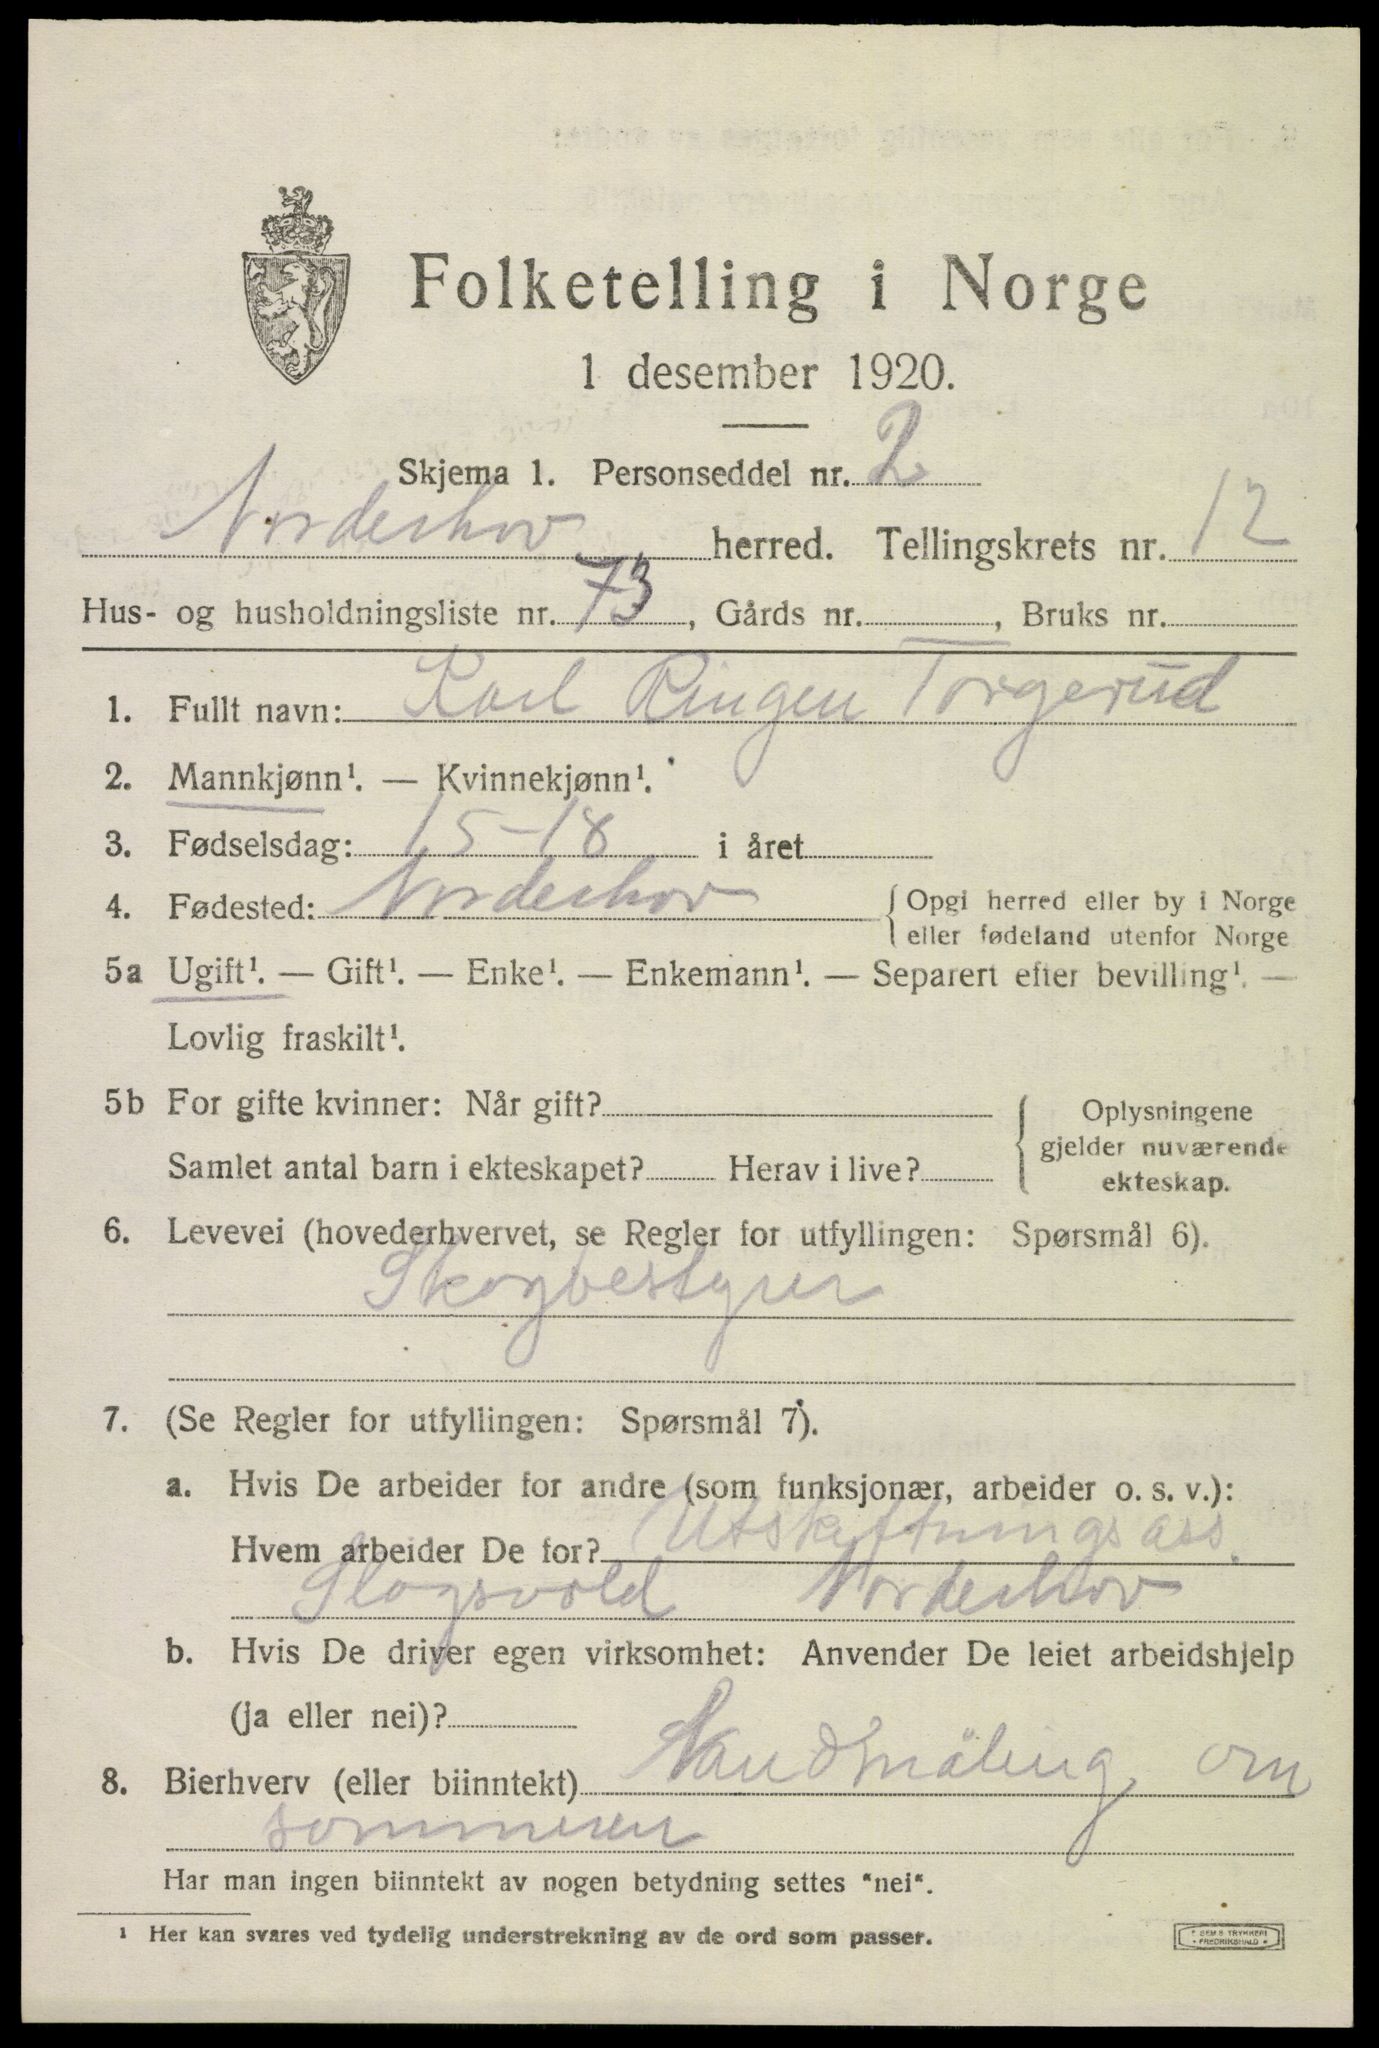 Folketelling i Norge
1 desember 1920.
Skjema 1. Personseddel nr. 2
Norderhov herred. Tellingskrets nr. 12
Hus- og husholdningsliste nr. 73, Gårds nr. , Bruks nr.
1. Fullt navn: Karl Ringen Torgerud
2. Mannkjønn¹. — Kvinnekjønn¹.
3. Fødselsdag: 15-18 i året
4. Fødested: Norderhov {Opgi herred eller by i Norge
eller fødeland utenfor Norge
5a Ugift¹. — Gift¹. — Enke¹. — Enkemann¹. — Separert efter bevilling¹. —
Lovlig fraskilt¹.
5b For gifte kvinner: Når gift? { Oplysningene
gjelder nuværende
Samlet antal barn i ekteskapet? Herav i live?
ekteskap.
6. Levevei (hovederhvervet, se Regler for utfyllingen: Spørsmål 6).
Skogbestyrer
7. (Se Regler for utfyllingen: Spørsmål 7).
a. Hvis De arbeider for andre (som funksjonær, arbeider o. s. v.):
Hvem arbeider De for? Utskiftnings ass.
Slogsvold Norderhov
b. Hvis De driver egen virksomhet: Anvender De leiet arbeidshjelp
(ja eller nei)?
8. Bierhverv (eller biinntekt) om
sommeren
Har man ingen biinntekt av nogen betydning settes "nei".
¹ Her kan svares ved tydelig understrekning av de ord som passer.
* SEM S TRYKKERI
* FREDRIKSHALD *